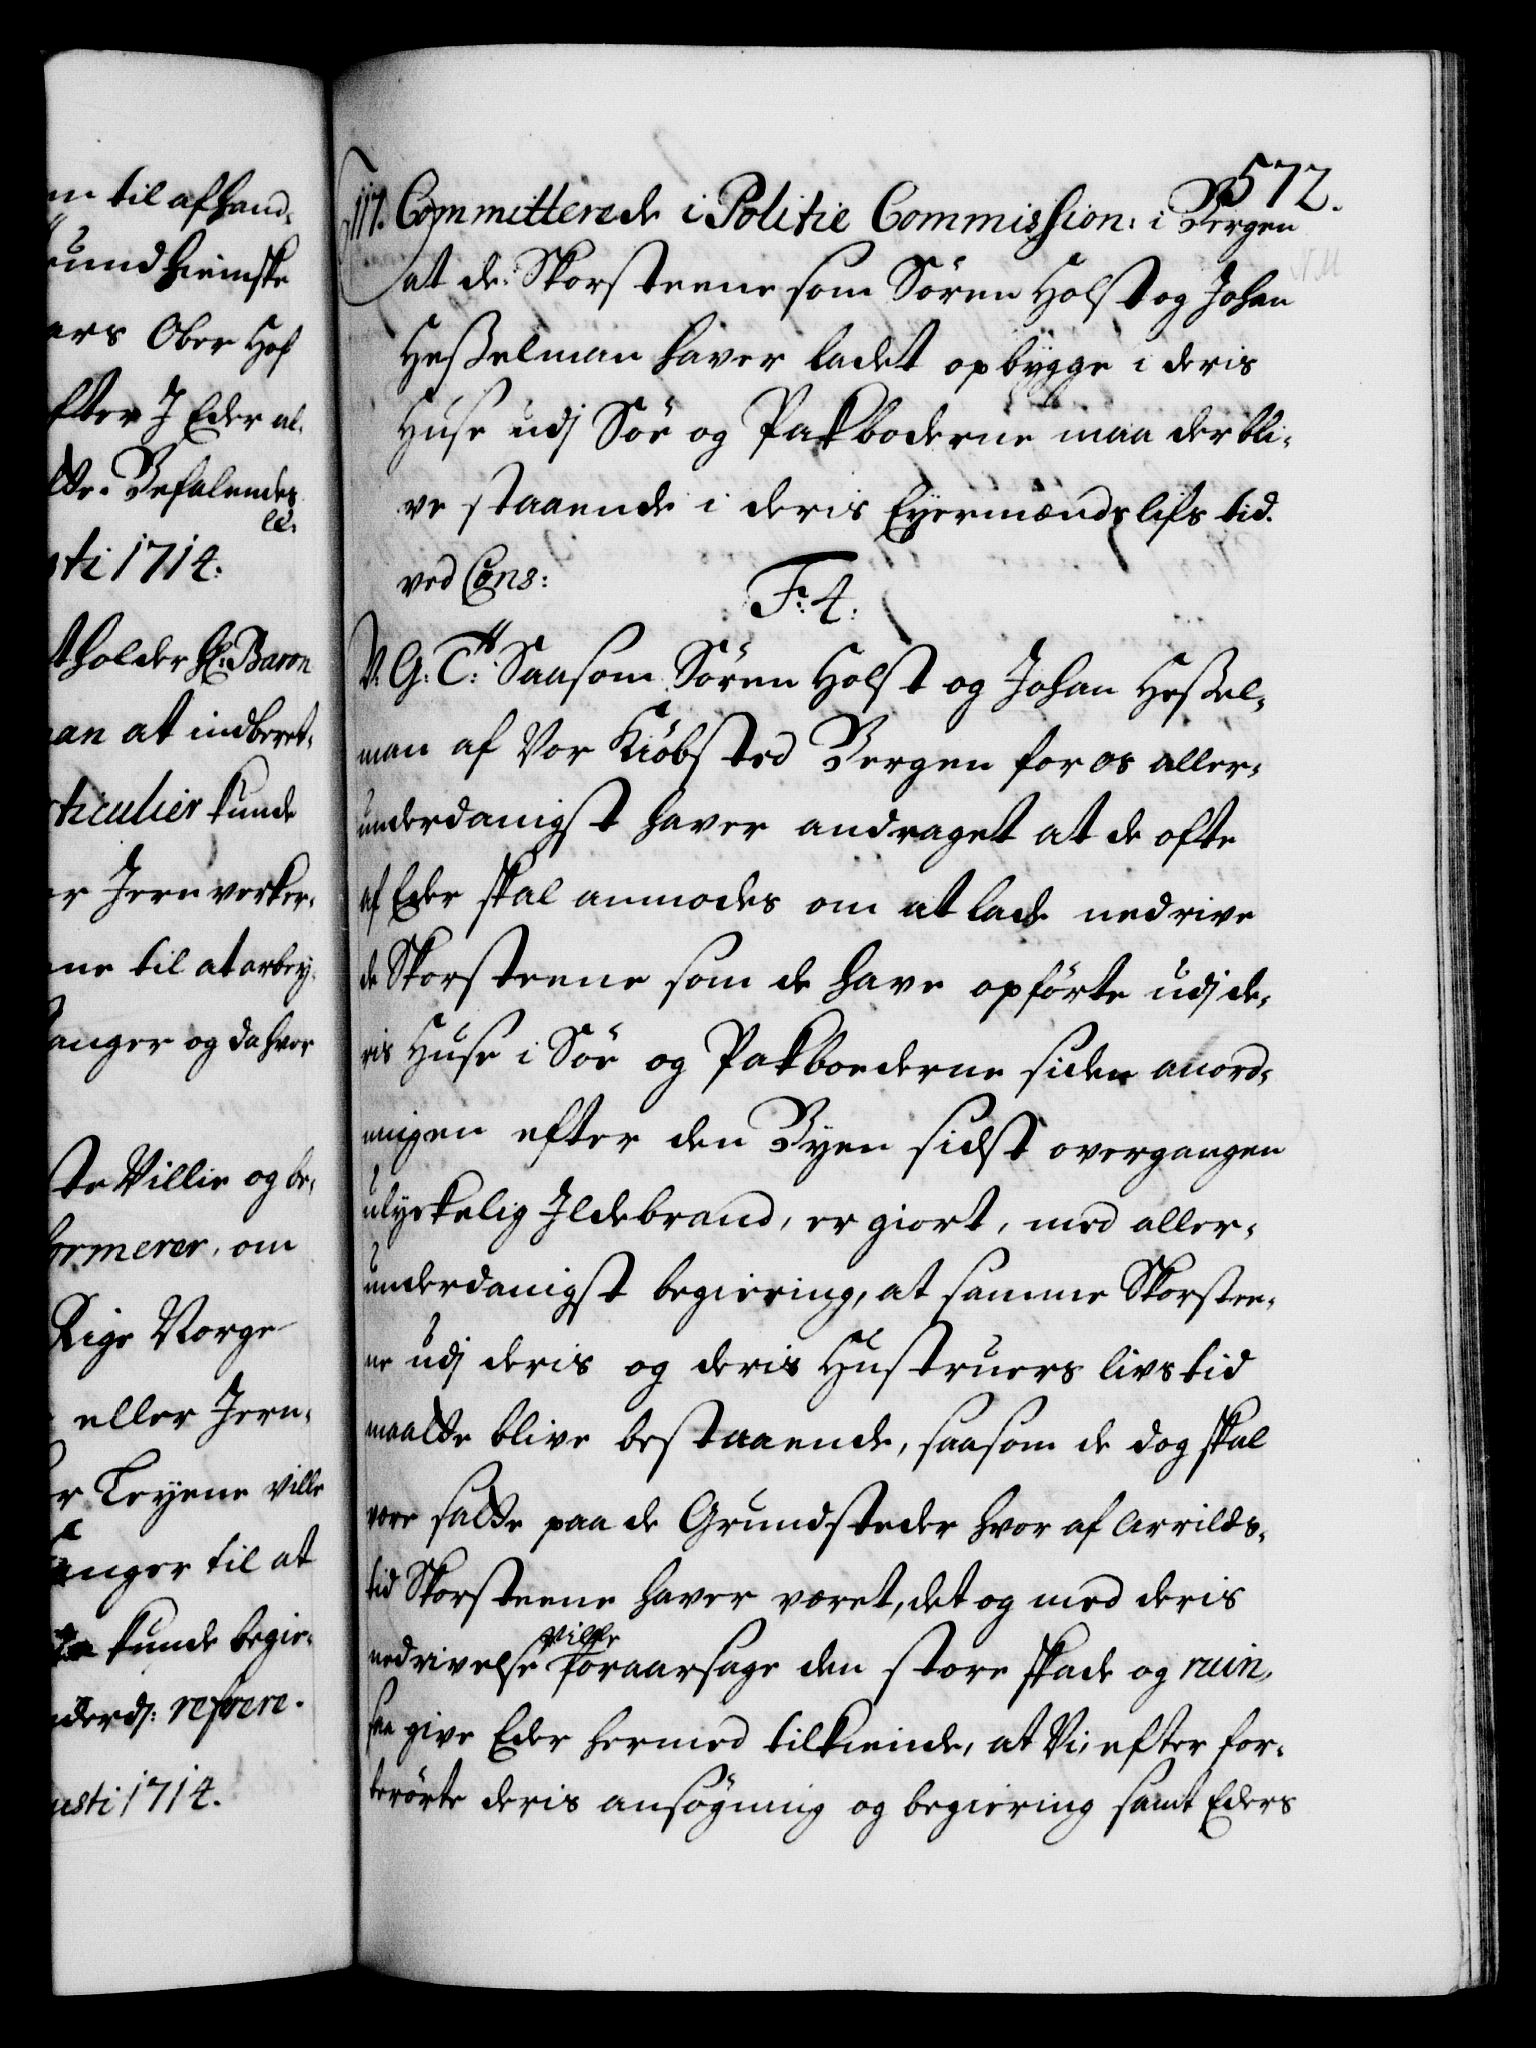 m til afhand-
undhiemske
ars Ober Hof
fter J Eder al-
tte. Befalendes
etc:
sti 1714.
tholder Hr: Baron
an at indberet-
rticulier kunde
er Jernverker-
ne til at arbey-
anger og da hvor
ste Villie og be-
formerer, om
Rige Norge
eller Jern-
r Leyene ville
anger til at
kunde begie-
nderd: referere.
usti 1714.
572.
117. Committerede i Politie Commission: i Bergen
at de: Skorsteene som Sören Holst og Johan
Hesselman haver ladet opbygge i deris
Huse udj Söe og Pakboderne maa der bli-
ve staaende i deris Eyermænds lifs tid.
ved Cons:
F: 4:
V: G: T: Saasom Sören Holst og Johan Hessel-
man af Vor Kiöbsted Bergen for os aller-
underdanigst haver andraget at de ofte
af Eder skal anmodes om at lade nedrive
de Skorsteene som de have opförte udj de-
ris Huse i Söe og Pakboederne siden anord-
nigen efter den Byen sidst overgangen
ulyckelig Jldebrand, er giort, med aller-
underdanigst begiering, at samme Skorstee-
ne udj deris og deris Hustruers livs tid
maatte blive bestaaende, saasom de dog skal
være satte paa de Grundsteder hvor af Arrilds-
tid Skorsteene haver været, det og med deris
ville
nedrivelse foraarsage den store skade og ruin,
saa give Eder hermed tilkiende, at Vi, efter for-
berörte deris ansögning og begiering samt Eders